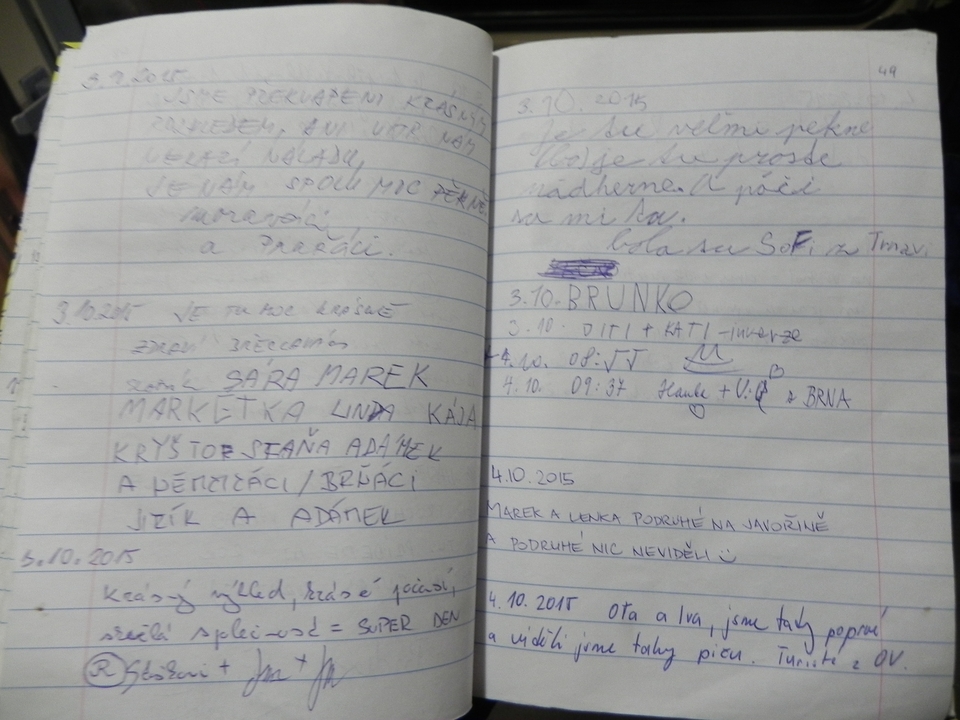 3.9.2015
JSME PŘEKVAPENI KRÁSNÝM
POHLEDEM, ANI VÍTR NÁM
NEKAZÍ NÁLADU,
JE NÁM SPOLU MOC PĚKNĚ
moraváci
a PRAŽÁCI.
3.10.2015 JE TU MOC KRÁSNĚ
ZDRAVÍ
SÁRA MAREK
MARKÉTKA LINDA KÁJA
KRYŠTOF STAŇA ADÁMEK
A NĚMČIČÁCI / BRŇÁCI
JIŘÍK A ADÁMEK
3.10.2015
Krásný výhled, krásé počasí,
skvělá společnost = SUPER DEN
49
3.10.2015
Je tu velmi pekne
je tu proste
nádherne. A páči
sa mi tu.
bola tu SOFI z Trnavi
3.10. BRUNKO
3.10. DITI + KATI - inverze
4.10. 08:55
4.10. 09:37 Hanka + z BRNA
4.10.2015
MAREK A LENKA PODRUHÉ NA JAVOŘINĚ
A PODRUHÉ NIC NEVIDĚLI
4.10.2015 Ota a Iva, jsme taky poprvé
a viděli jsme taky piču. Turisté z OV.